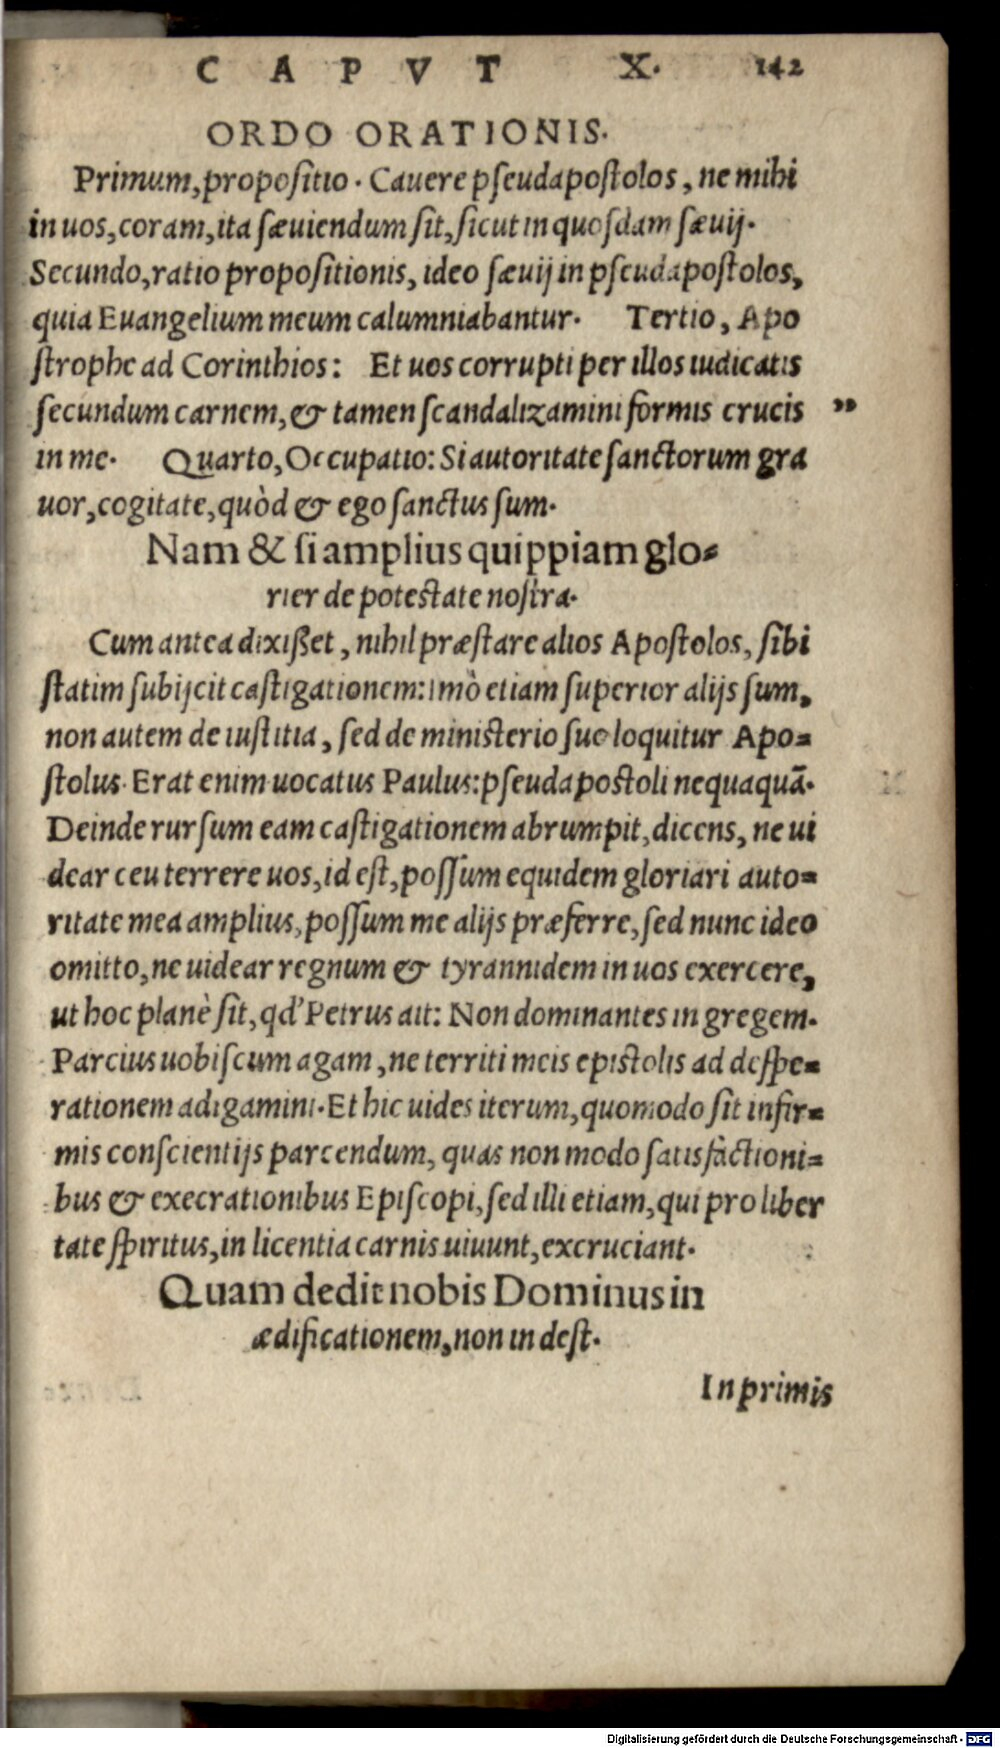 CAPVT X. 142
ORDO ORATIONIS.
Primum, propositio. Cauere pseudapostolos, ne mihi
in uos, coram, ita sæuiendum sit, sicut in quosdam sæuij.
Secundo, ratio propositionis, ideo sæuij in pseudapostolos,
quia Euangelium meum calumniabantur. Tertio, Apo
strophe ad Corinthios: Et uos corrupti per illos iudicatis
secundum carnem, & tamen scandalizamini formis crucis ”
in me. Quarto, Occupatio: Si autoritate sanctorum gra
uor, cogitate, quòd & ego sanctus sum.
Nam & si amplius quippiam glo-
rier de potestate nostra.
Cum antea dixißet, nihil præstare alios Apostolos, sibi
statim subijcit castigationem: imò etiam superior alijs sum,
non autem de iustitia, sed de ministerio suo loquitur Apo-
stolus. Erat enim uocatus Paulus: pseudapostoli nequaquã.
Deinde rursum eam castigationem abrumpit, dicens, ne ui
dear ceu terrere uos, id est, possum equidem gloriari auto-
ritate mea amplius, possum me alijs præferre, sed nunc ideo
omitto, ne uidear regnum & tyrannidem in uos exercere,
ut hoc planè sit, qd' Petrus ait: Non dominantes in gregem.
Parcius uobiscum agam, ne territi meis epistolis ad despe-
rationem adigamini. Et hic uides iterum, quomodo sit infir-
mis conscientijs parcendum, quas non modo satisfactioni-
bus & execrationibus Episcopi, sed illi etiam, qui pro liber
tate spiritus, in licentia carnis uiuunt, excruciant.
Quam dedit nobis Dominus in
ædificationem, non in dest.
In primis
Digitalisierung gefördert durch die Deutsche Forschungsgemeinschaft - DFG